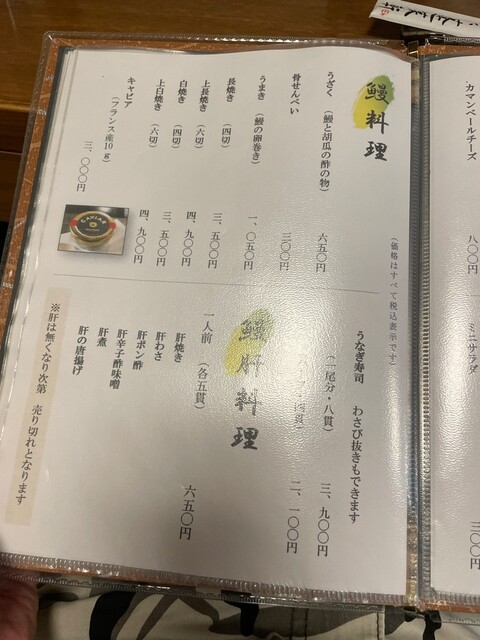 鰻料理
(価格はすべて税込表示です)
うざく (鰻と胡瓜の酢の物) 六五〇円
骨せんべい 三〇〇円
うまき (鰻の卵巻き) 一、〇五〇円
長焼き (四切) 三、五〇〇円
上長焼き (六切) 四、九〇〇円
白焼き (四切) 三、五〇〇円
上白焼き (六切) 四、九〇〇円
キャビア (フランス産10g) 三、〇〇〇円
CAVIAR
うなぎ寿司 わさび抜きもできます
(一尾分・八貫) 三、九〇〇円
貫) 二、一〇〇円
鰻肝料理
一人前 (各五貫) 六五〇円
肝焼き
肝わさ
肝ポン酢
肝辛子酢味噌
肝煮
肝の唐揚げ
※肝は無くなり次第 売り切れとなります
カマンベールチーズ 八〇〇円
ミニサラダ 三〇〇円